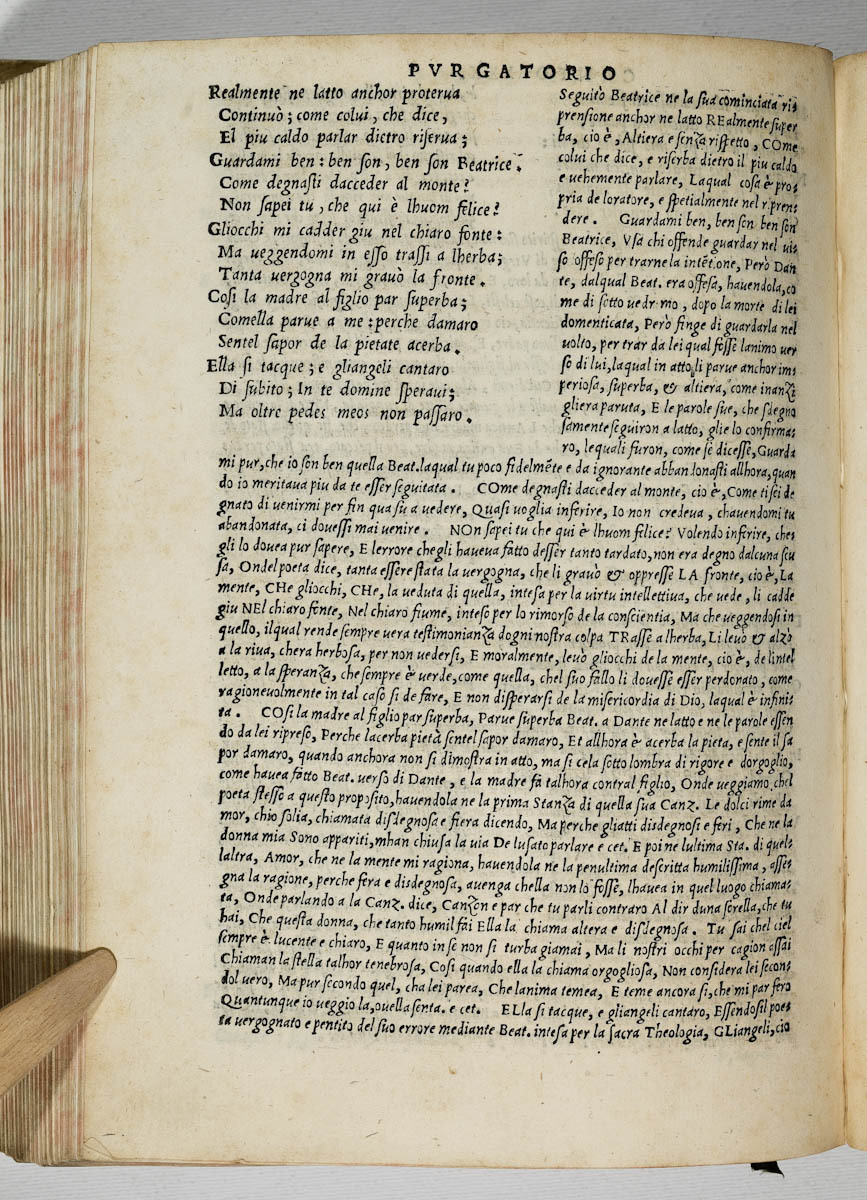 PVRGATORIO
Realmente ne latto anchor proterua
Continuò; come colui, che dice,
El piu caldo parlar dietro riserua;
Guardami ben: ben son, ben son Beatrice:
Come degnasti dacceder al monte?
Non sapei tu, che qui è lhuom felice?
Gliocchi mi cadder giu nel chiaro fonte:
Ma ueggendomi in esso trassi a lherba;
Tanta uergogna mi grauò la fronte.
Cosi la madre al figlio par superba;
Comella parue a me: perche damaro
Sentel sapor de la pietate acerba.
Ella si tacque; e gliangeli cantaro
Di subito; In te domine speraui;
Ma oltre pedes meos non passaro.
Seguitò Beatrice ne la sua cominciata ri=
prensione anchor ne latto REalmente super
ba, cio è, Altiera e senza rispetto, COme
colui che dice, e riserba dietro il piu caldo
e uehemente parlare, Laqual cosa è pro=
pria de loratore, e spetialmente nel ripren=
dere. Guardami ben, ben son ben son
Beatrice, Vsa chi offende guardar nel ui=
so offeso per trarne la intẽtione, Però Dan
te, dalqual Beat. era offesa, hauendola, co
me di sotto uedremo, dopo la morte di lei
domenticata, Però finge di guardarla nel
uolto, per trar da lei qual fosse lanimo uer
so di lui, laqual in atto li parue anchor im=
periosa, superba, & altiera, come inanzi
gliera paruta, E le parole sue, che sdegno
samente seguiron a latto, glie lo confirma=
ro, lequali furon, come se dicesse, Guarda
mi pur, che io son ben quella Beat. laqual tu poco fidelmẽte e da ignorante abbandonasti allhora, quan
do io meritaua piu da te esser seguitata. COme degnasti dacceder al monte, cio è, Come ti sei de
gnato di uenirmi per fin qua su a uedere, Quasi uoglia inferire, Io non credeua, chauendomi tu
abandonata, ci douessi mai uenire. NOn sapei tu che qui è lhuom felice? Volendo inferire, che
gli lo douea pur sapere, E lerrore chegli haueua fatto desser tanto tardato, non era degno dalcuna scu
sa, Ondel poeta dice, tanta essere stata la uergogna, che li grauò & oppresse LA fronte, cio è, La
mente, CHe gliocchi, CHe, la ueduta di quella, intesa per la uirtu intellettiua, che uede, li cadde
giu NEl chiaro fonte, Nel chiaro fiume, inteso per lo rimorso de la conscientia, Ma che ueggendosi in
quello, ilqual rende sempre uera testimonianza dogni nostra colpa TRasse a lherba, Li leuò & alzò
a la riua, chera herbosa, per non uedersi, E moralmente, leuò gliocchi de la mente, cio è, de lintel
letto, a la speranza, che sempre è uerde, come quella, chel suo fallo li douesse esser perdonato, come
ragioneuolmente in tal caso si de fare, E non disperarsi de la misericordia di Dio, laqual è infini=
ta. COsi la madre al figlio par superba, Parue superba Beat. a Dante ne latto e ne le parole essen
do da lei ripreso, Perche lacerba pietà sentel sapor damaro, Et allhora è acerba la pieta, e sente il sa
por damaro, quando anchora non si dimostra in atto, ma si cela sotto lombra di rigore e dorgoglio,
come hauea fatto Beat. uerso di Dante, e la madre fà talhora contral figlio, Onde ueggiamo chel
poeta stesso a questo proposito, hauendola ne la prima Stanza di quella sua Canz. Le dolci rime da
mor, chio solia, chiamata disdegnosa e fiera dicendo, Ma perche gliatti disdegnosi e feri, Che ne la
donna mia Sono appariti, mhan chiusa la uia De lusato parlare e cet. E poi ne lultima Sta. di quel=
laltra, Amor, che ne la mente mi ragiona, hauendola ne la penultima descritta humilissima, asse=
gna la ragione, perche fera e disdegnosa, auenga chella non lo fosse, lhauea in quel luogo chiama=
ta, Onde parlando a la Canz. dice, Canzon e par che tu parli contraro Al dir duna sorella, che tu
hai, Che questa donna, che tanto humil fai Ella la chiama altera e disdegnosa. Tu sai chel ciel
sempre è lucente e chiaro, E quanto in se non si turba giamai, Ma li nostri occhi per cagion assai
Chiaman la stella talhor tenebrosa, Cosi quando ella la chiama orgogliosa, Non considera lei secon=
dol uero, Ma pur secondo quel, cha lei parea, Che lanima temea, E teme ancora si, che mi par fero
Quantunque io ueggio la, ouella senta. e cet. ELla si tacque, e gliangeli cantaro, Essendosil poe=
ta uergognato e pentito del suo errore mediante Beat. intesa per la sacra Theologia, GLiangeli, cio